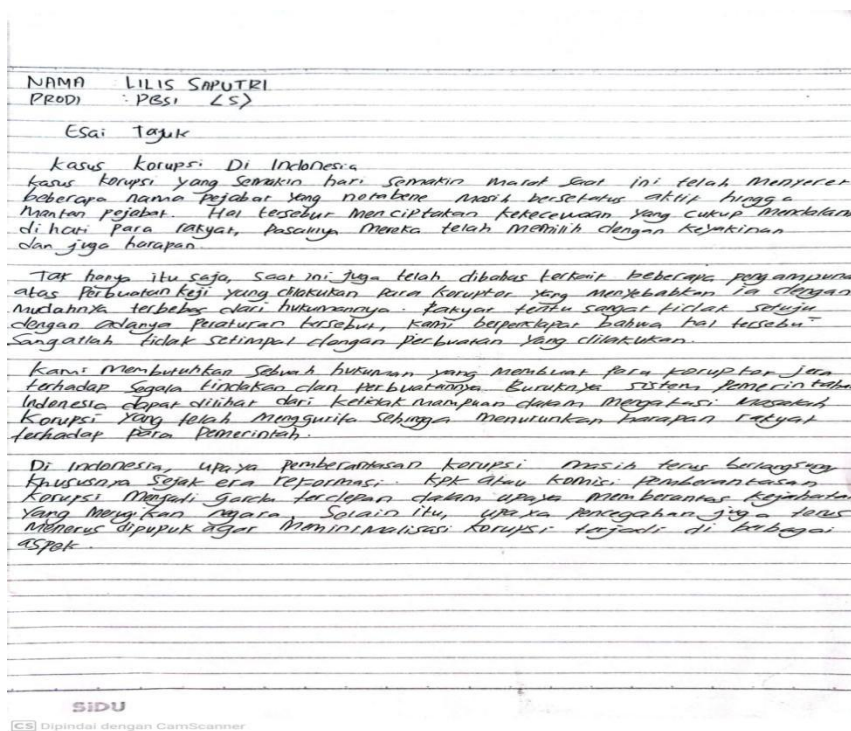 NAMA LILIS SAPUTRI
PRODI : PBSI (S)
Esai Tajuk
Kasus Korupsi Di Indonesia
Kasus Korupsi yang semakin hari semakin marat saat ini telah menyeret
beberapa nama pejabat yang notabene masih bersetatus aktif hingga
mantan pejabat. Hal tersebut menciptakan kekecewaan yang cukup mendalam
di hati para rakyat, pasalnya mereka telah memilih dengan keyakinan
dan juga harapan.
Tak hanya itu saja, saat ini juga telah dibahas terkait beberapa pengampuna
atas perbuatan keji yang dilakukan para koruptor yang menyebabkan ia dengan
mudahnya terbebas dari hukumannya. Rakyat tentu sangat tidak setuju
dengan adanya peraturan tersebut, kami berpendapat bahwa hal tersebut
sangatlah tidak setimpal dengan perbuatan yang dilakukan.
Kami membutuhkan sebuah hukuman yang membuat para koruptor jera
terhadap segala tindakan dan perbuatannya. Buruknya sistem pemerintaha
Indonesia dapat dilihat dari ketidak mampuan dalam mengatasi masalah
korupsi yang telah menggurita sehingga menurunkan harapan rakyat
terhadap para pemerintah.
Di Indonesia, upaya pemberantasan korupsi masih terus berlangsung
khususnya sejak era reformasi. KPK atau komisi pemberantasan
korupsi menjadi garda terdepan dalam upaya memberantas kejahata
yang merugikan negara. Selain itu, upaya pencegahan juga terus
menerus dipupuk agar meminimalisasi korupsi terjadi di berbagai
aspek.
SiDU
CS Dipindai dengan CamScanner